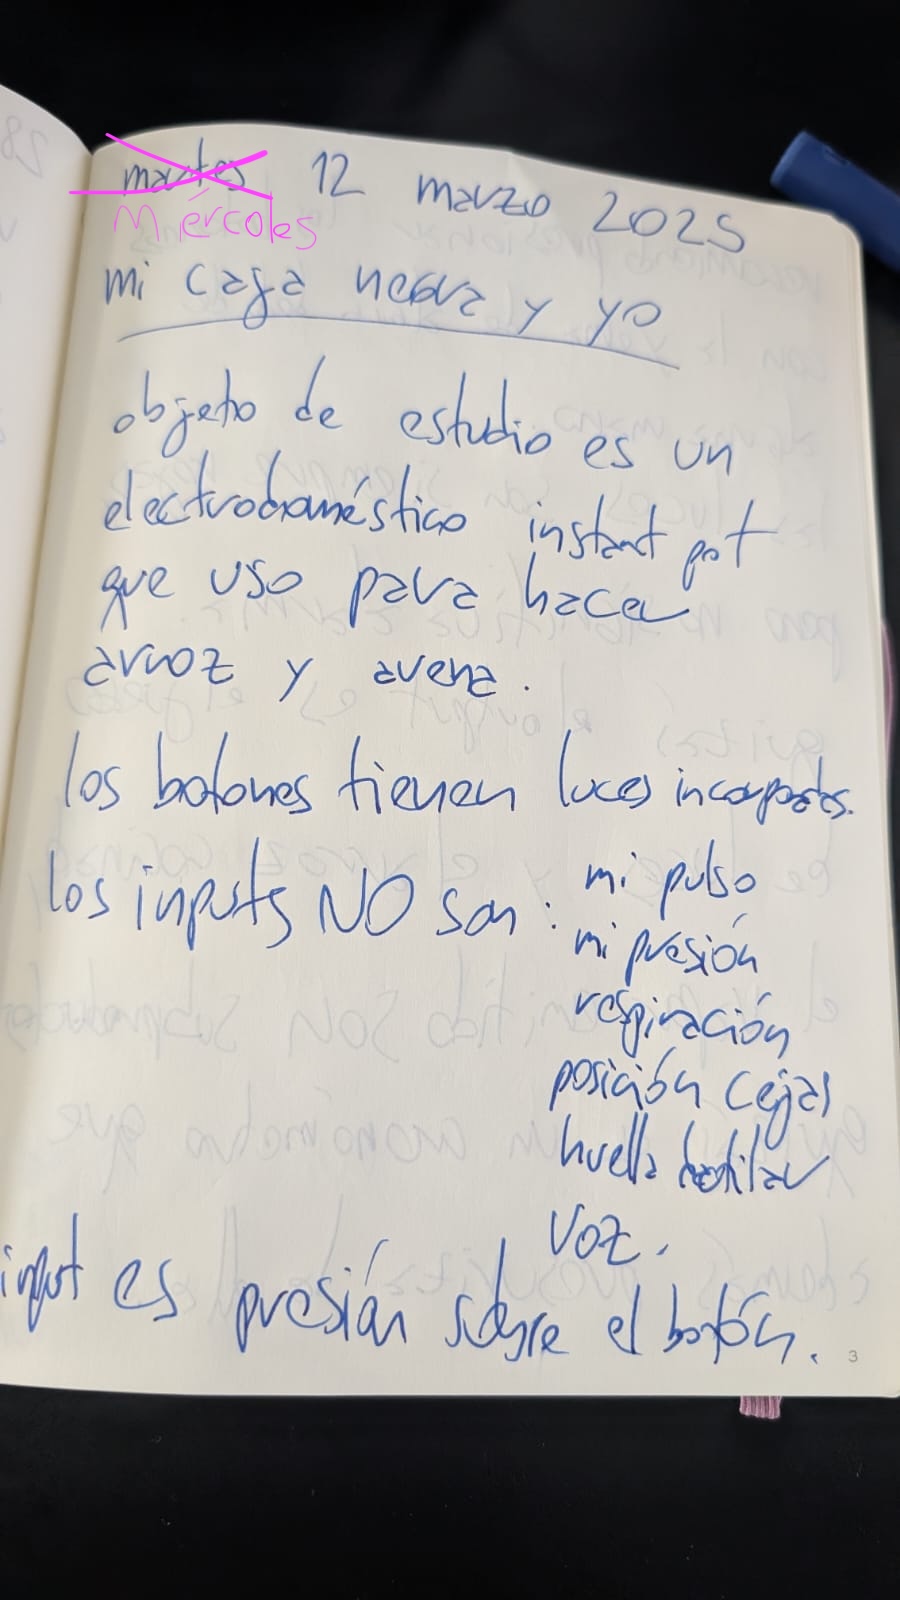 martes 12 marzo 2025
Miércoles
mi caja negra y yo
objeto de estudio es un
electrodoméstico instant pot
que uso para hacer
arroz y avena.
los botones tienen luces incorporadas.
los inputs NO son : mi pulso
mi presión
respiración
posición cejas
huella dactilar
voz.
input es presión sobre el botón.
3